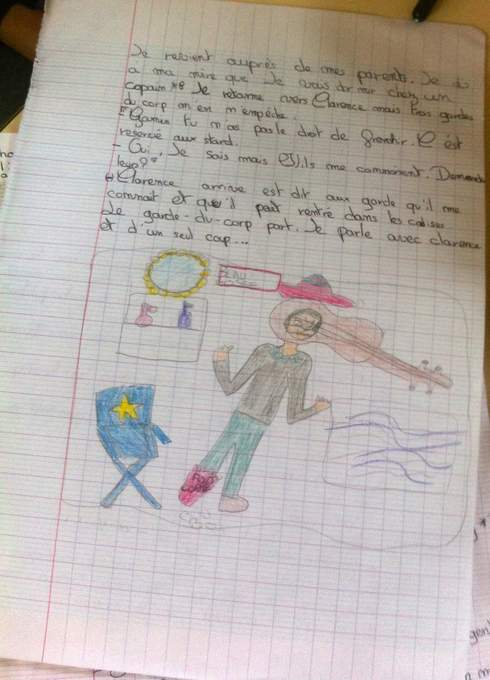 Je revient auprès de mes parents. Je di
a ma mère que Je vais dormir chez un
copain. Je retourne vers Clarence mais trois gardes
du corp m'en m'empêche.
- Gamin tu n'as pas le droit de frentir. C'est
reservé aux stard.
- Oui Je sais mais ils me connaissent. Demande
leur?
Clarence arrive est dit aux garde qu'il me
connait et que il peut rentré dans les calises
Le garde-du-corp part. Je parle avec clarence
et d'un seul coup...